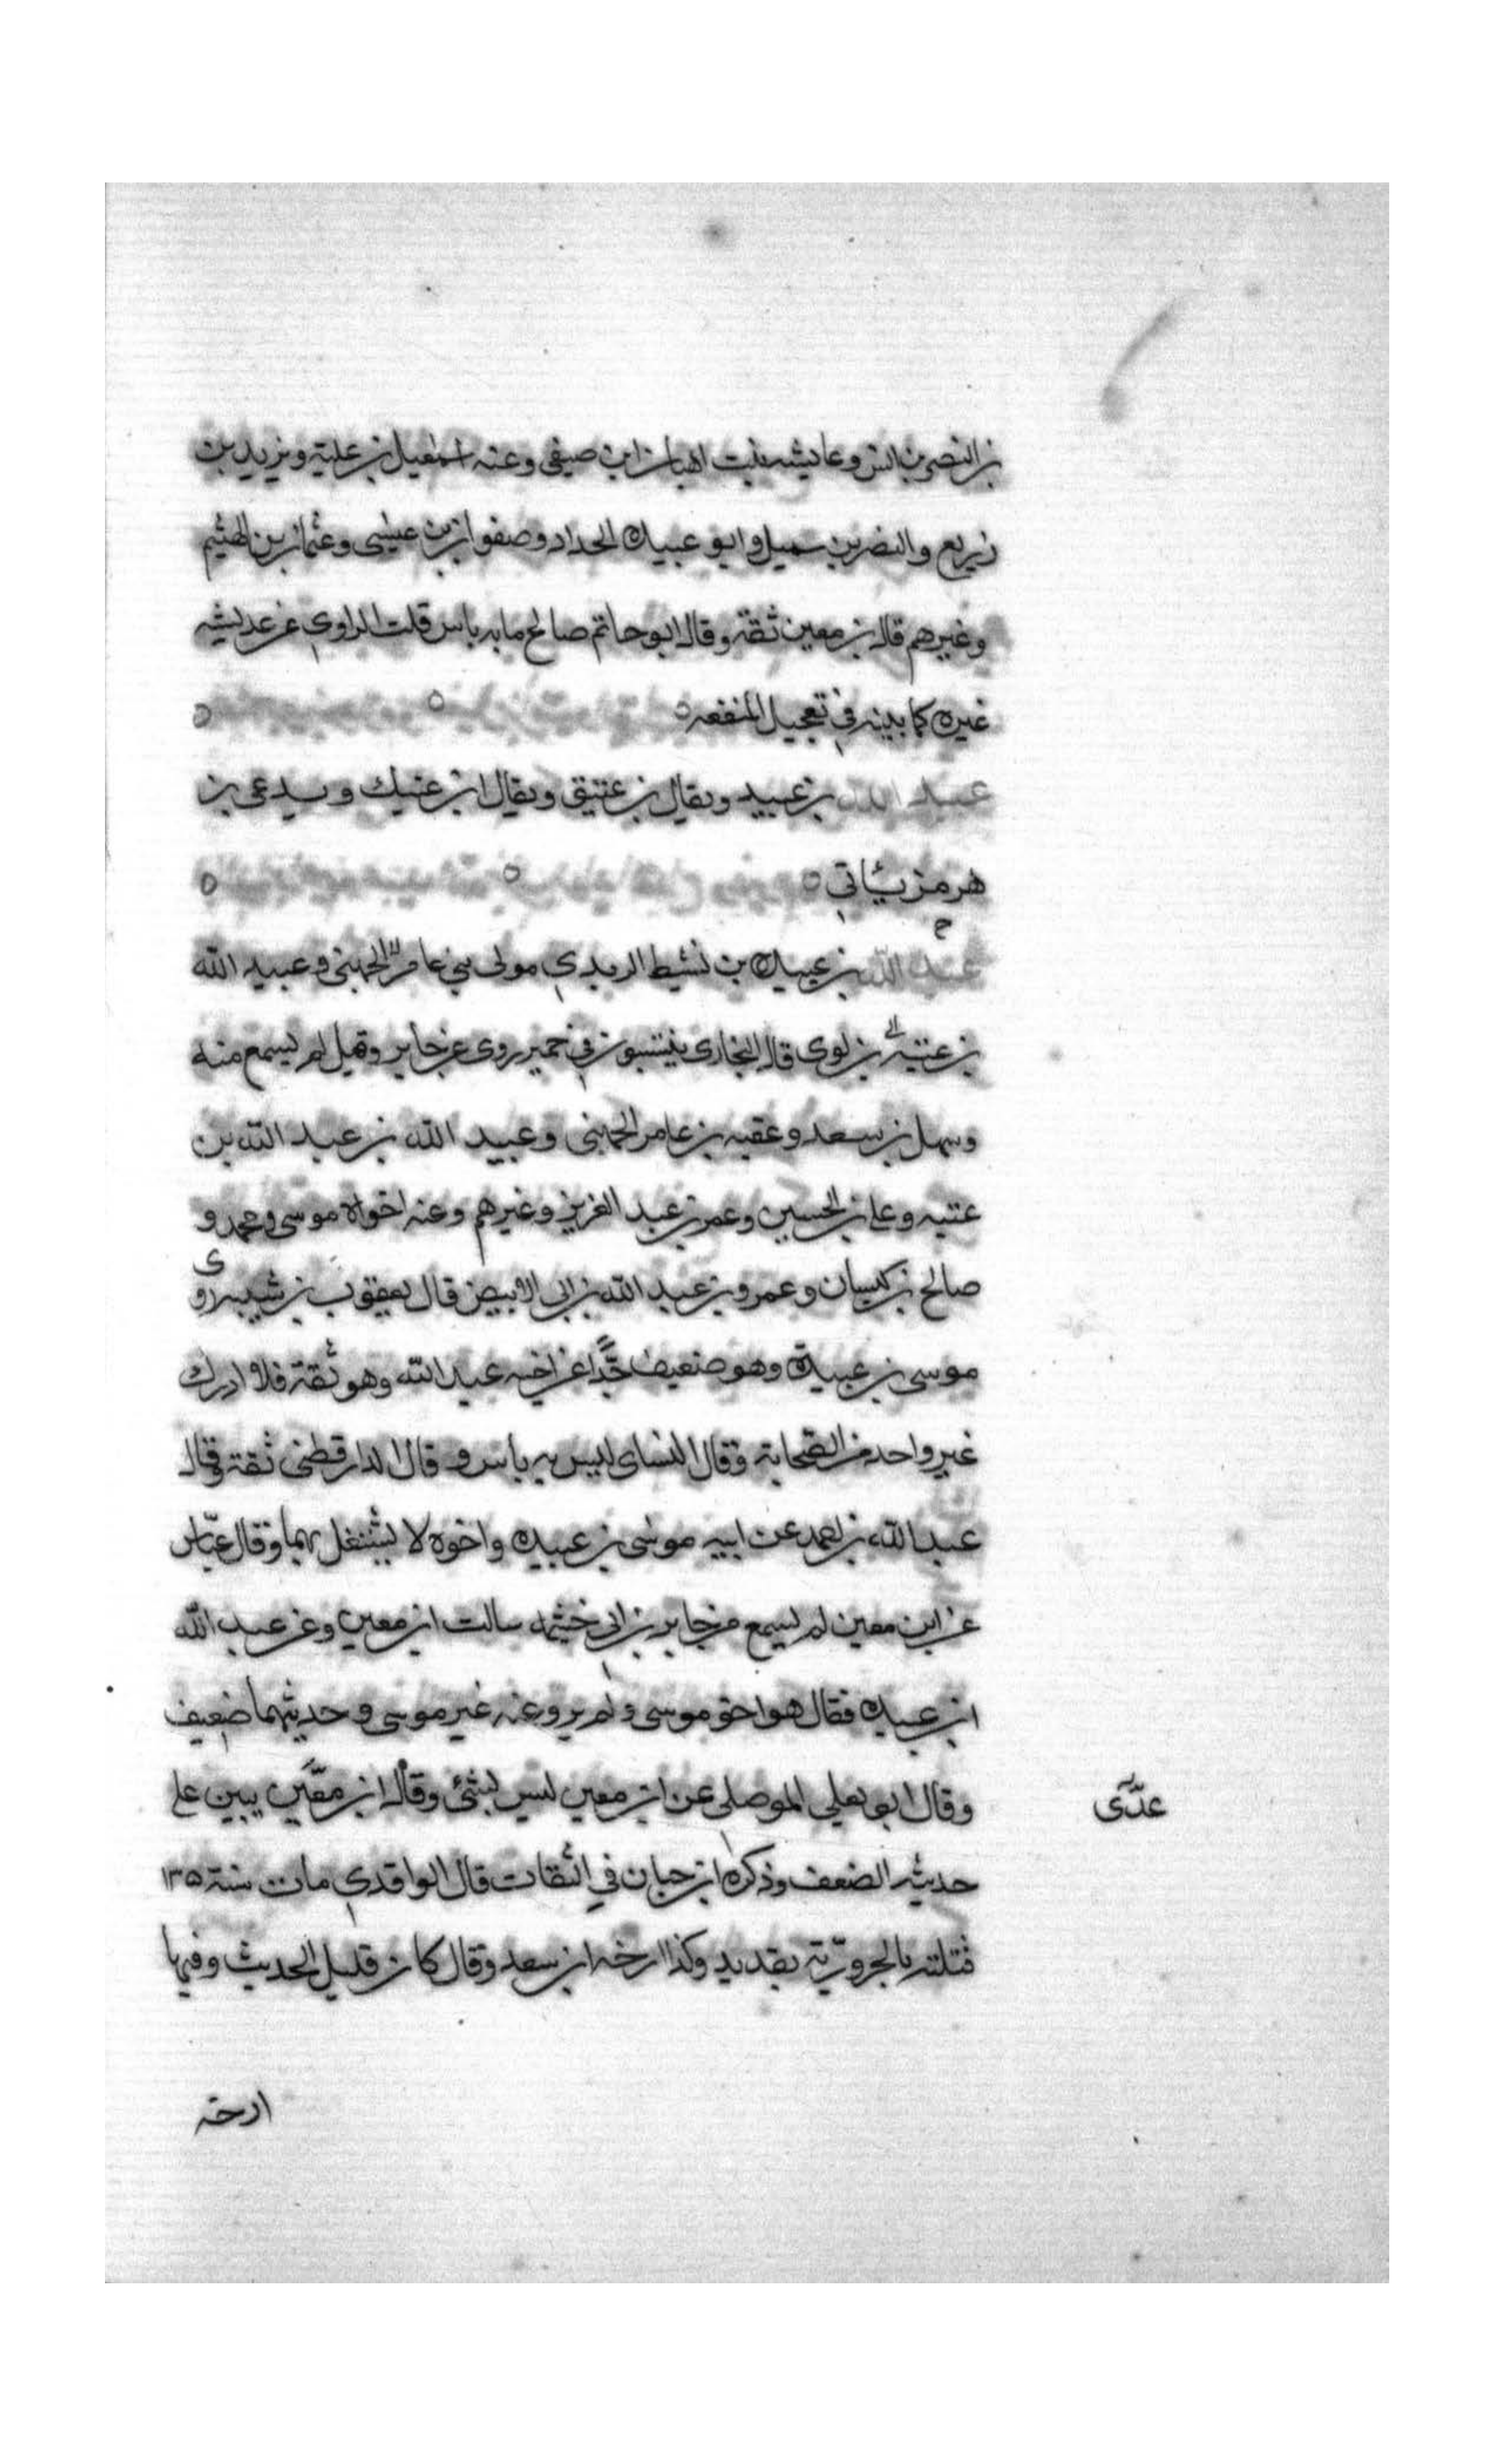 بن النضر بن انس وعايشه بنت اهبان ابن صيفى وعنه اسمعيل بن علية ويزيد بن
زريع والنضر بن سميل وابو عبيده الحداد وصفوان بن عيسى وعثمان بن الهثيم
وغيرهم قال بن معين ثقة وقال ابو حاتم صالح ما به باس قلت الراوى عن عديشه
غيره كما بينه في تعجيل المنفعه
عبيد الله بن عبيد ويقال بن عتيق ويقال ابن عتيك ويدعى بن
هرمز يئاتي
عبد الله بن عبيده بن نشيط الربدي مولى بني عامر الجهنى وعبيد الله
بن عتبة بن لوى قال البخارى ينتسبون في حمير روى عن جابر وقيل لم يسمع منه
وسهل بن سعد وعقبه بن عامر الجهنى وعبيد الله بن عبد الله بن
عتبه وعلى بن الحسين وعمر بن عبد العزيز وغيرهم وعنه اخواه موسى ومحمد و
صالح بن كيسان وعمرو بن عبد الله بن ابى الابيض قال يعقوب بن شيبه روى
موسى بن عبيدة وهو ضعيف جدًّا عن اخيه عبد الله وهو ثقة فلا ادرك
غير واحد من الصحابة وقال النساى ليس به باس و قال الدارقطنى ثقة وقال
عبد الله بن احمد عن ابيه موسى بن عبيده واخوه لا يشتغل بهما وقال عبّاس
عن ابن معين لم يسمع من جابر بن ابي خثيمه سالت ابن معين وعن عبد الله
ابن عبيده فقال هو اخو موسى ولم يرو عنه غير موسى وحديثهما ضعيف
وقال ابو يعلي الموصلى عن ابن معين ليس بشئ وقال ابن معّين يبين على
عدّى
حديثه الضعف وذكره ابن حبان في الثقات قال الواقدي مات سنة ١٣٥
قتلته بالجروريّة بقديد وكذا ارخه ابن سعد وقال كان قليل الحديث وفيها
ارخه